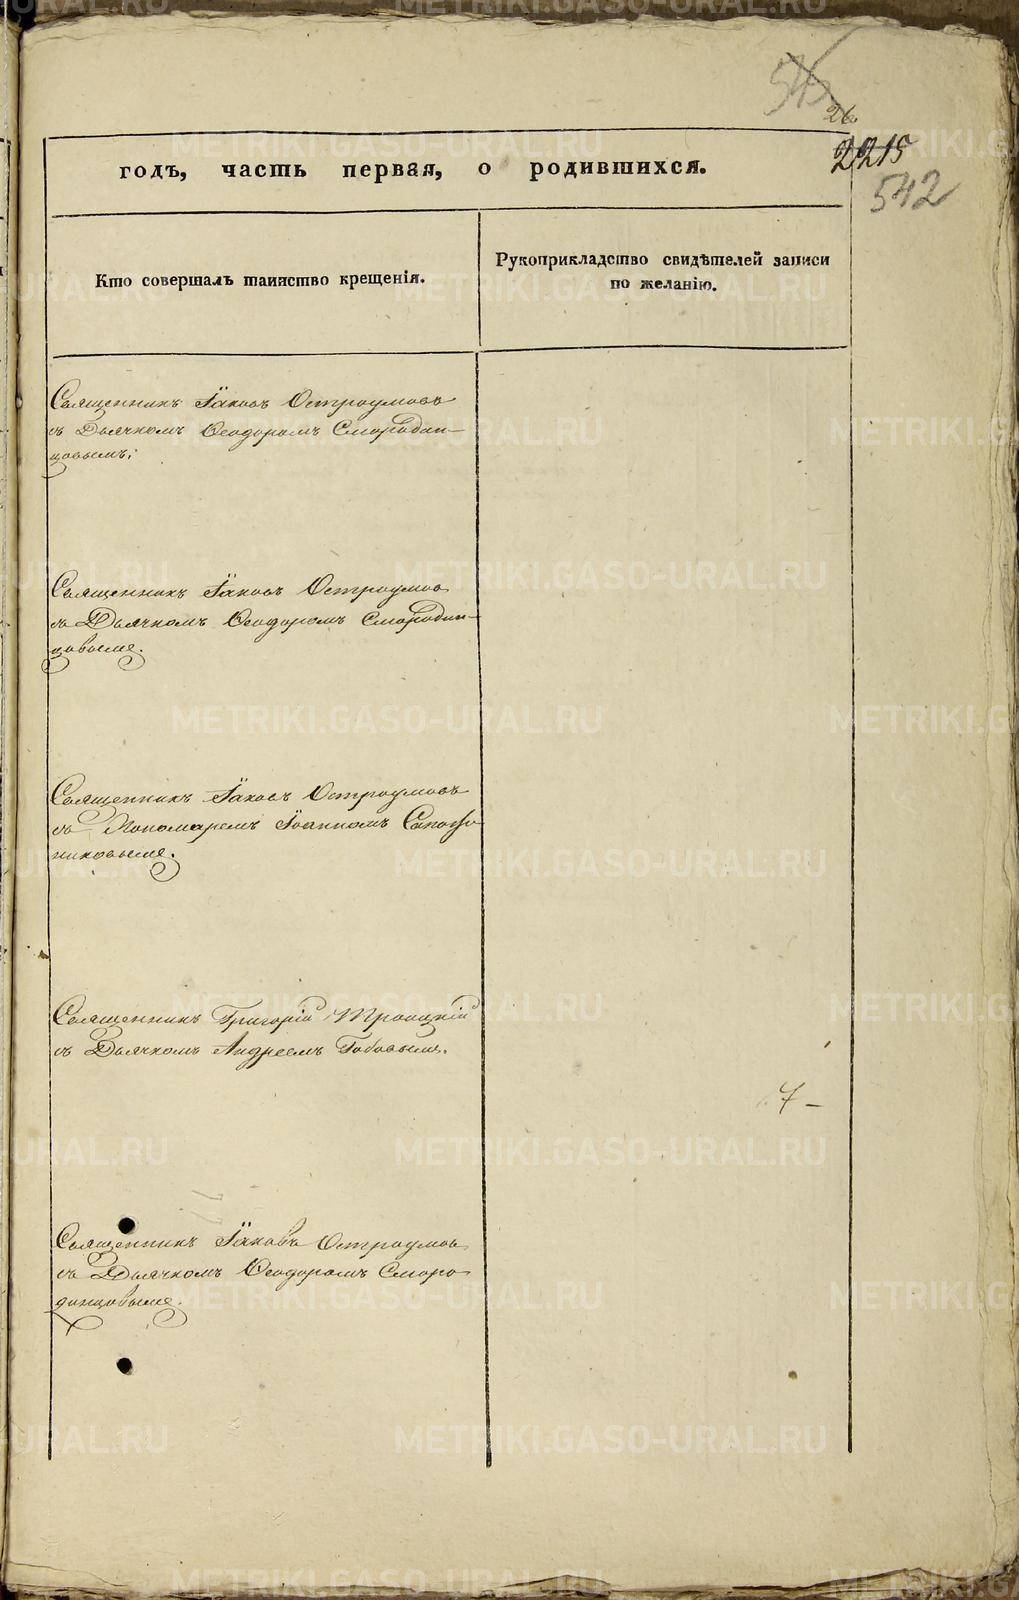 26
2215
542
годъ, часть первая, о родившихся.
Кто совершалъ таинство крещенія.
Рукоприкладство свидѣтелей записи
по желанію.
Священникъ Іаковъ Остроумовъ
съ Дьячкомъ Ѳеодоромъ Смородин-
цовымъ.
Священникъ Іаковъ Остроумов
съ Дьячкомъ Ѳеодоромъ Смородин-
цовымъ.
Священникъ Іаковъ Остроумовъ
съ Пономаремъ Іоанномъ Сапож-
никовымъ.
Священникъ Григорій Троицкій
съ Дьячкомъ Андреемъ Бабовымъ.
7 -
Священникъ Іаковъ Остроумов
съ Дьячкомъ Ѳеодоромъ Сморо
динцовымъ.
METRIKI.GASO-URAL.RU